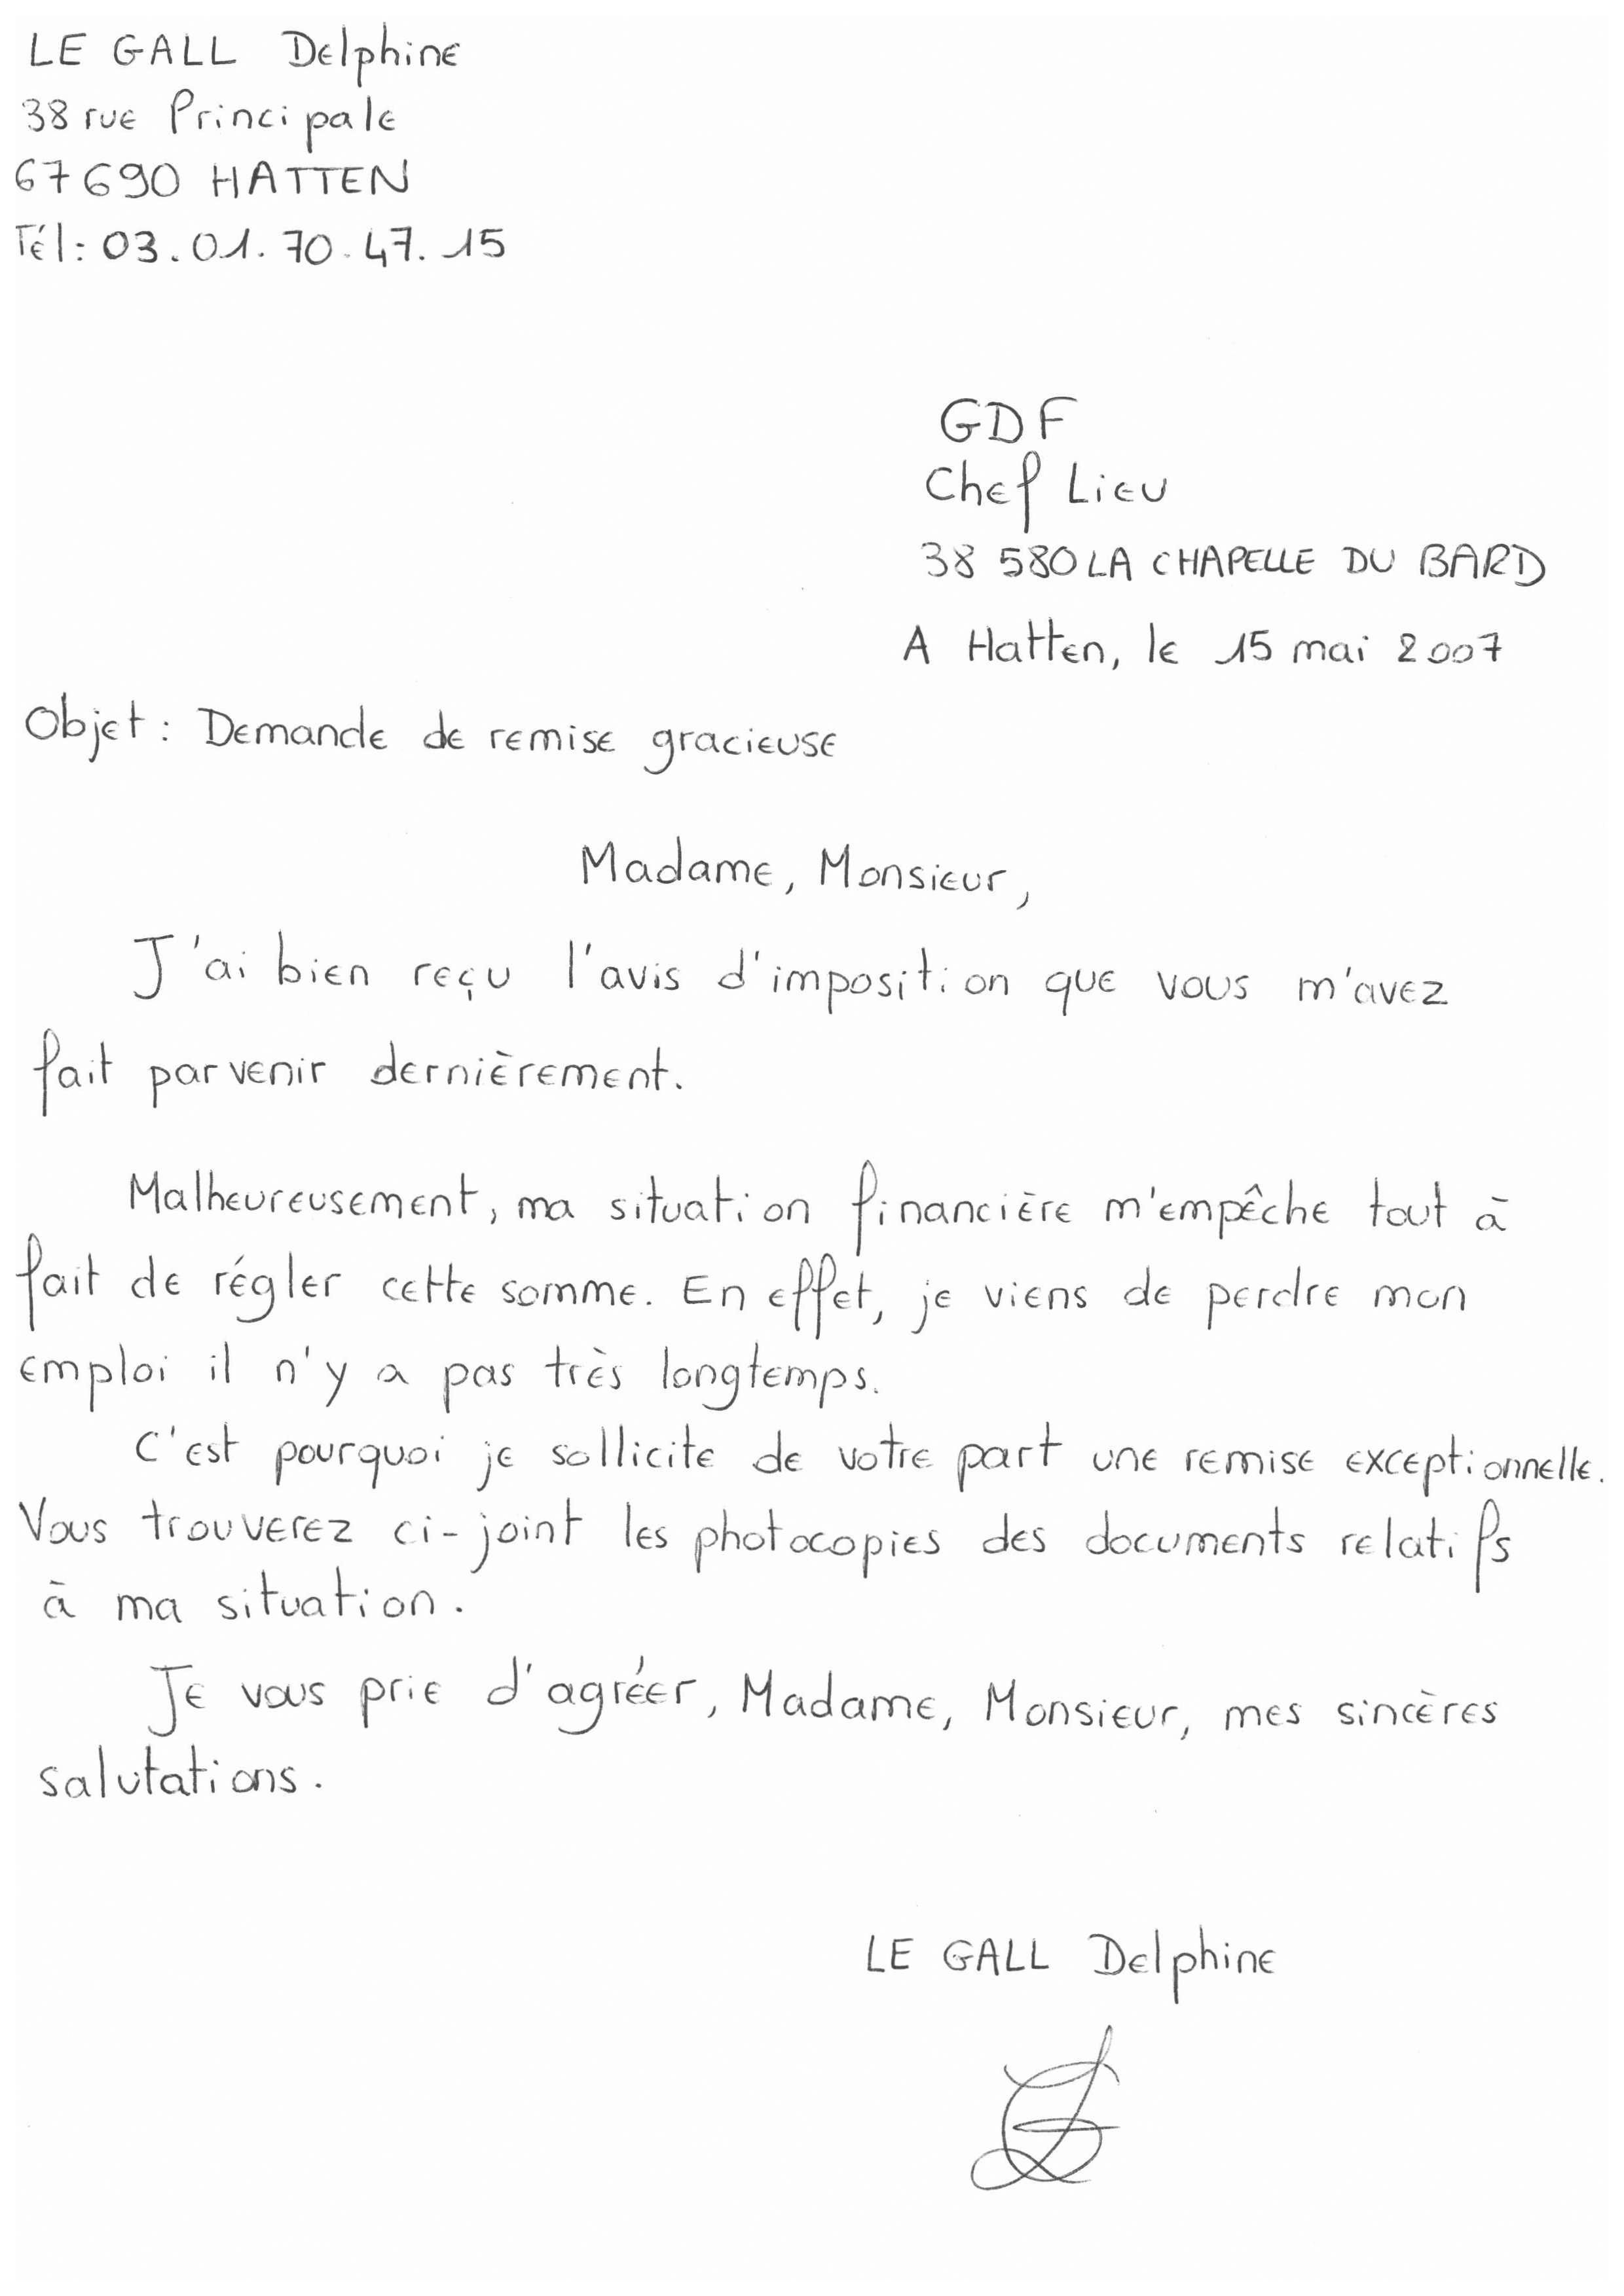 LE GALL Delphine
38 rue Principale
67690 HATTEN
Tél: 03.01.70.47.15
GDF
Chef Lieu
38 580 LA CHAPELLE DU BARD
A Hatten, le 15 mai 2007
Objet : Demande de remise gracieuse
Madame, Monsieur,
J'ai bien reçu l'avis d'imposition que vous m'avez
fait parvenir dernièrement.
Malheureusement, ma situation financière m'empêche tout à
fait de régler cette somme. En effet, je viens de perdre mon
emploi il n'y a pas très longtemps.
C'est pourquoi je sollicite de votre part une remise exceptionnelle.
Vous trouverez ci-joint les photocopies des documents relatifs
à ma situation.
Je vous prie d'agréer, Madame, Monsieur, mes sincères
salutations.
LE GALL Delphine